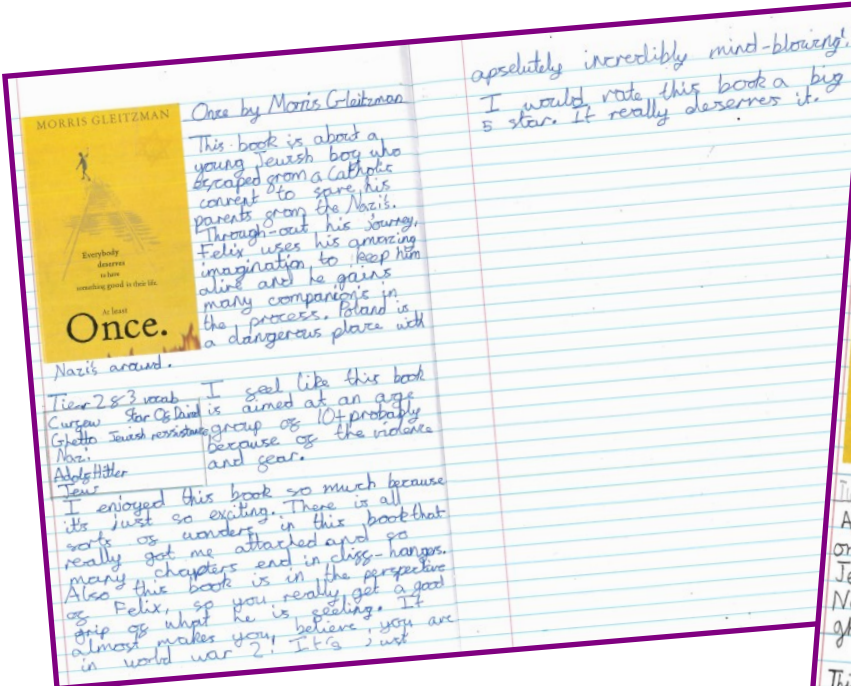 MORRIS GLEITZMAN
Everybody
deserves
to have
something good in their life.
At least
Once.
Once by Morris Gleitzman
This book is about a
young Jewish boy who
escaped from a Catholic
convent to save his
parents from the Nazi's.
Through-out his journey,
Felix uses his amazing
imagination to keep him
alive and he gains
many companion's in
the process. Poland is
a dangerous place with
Nazi's around.
Tier 2 & 3 vocab
Curfew Star Of David
Ghetto Jewish ressistance
Nazi
Adolf Hitler
Jews
I feel like this book
is aimed at an age
group of 10+ probably
because of the violence
and fear.
I enjoyed this book so much because
it's just so exciting. There is all
sorts of wonders in this book that
really got me attached and so
many chapters end in cliff-hangers.
Also this book is in the perspective
of Felix, so you really get a good
grip of what he is feeling. It
almost makes you believe you are
in world war 2! It's just
apselutely incredibly mind-blowing!
I would rate this book a big
5 star. It really deserves it.